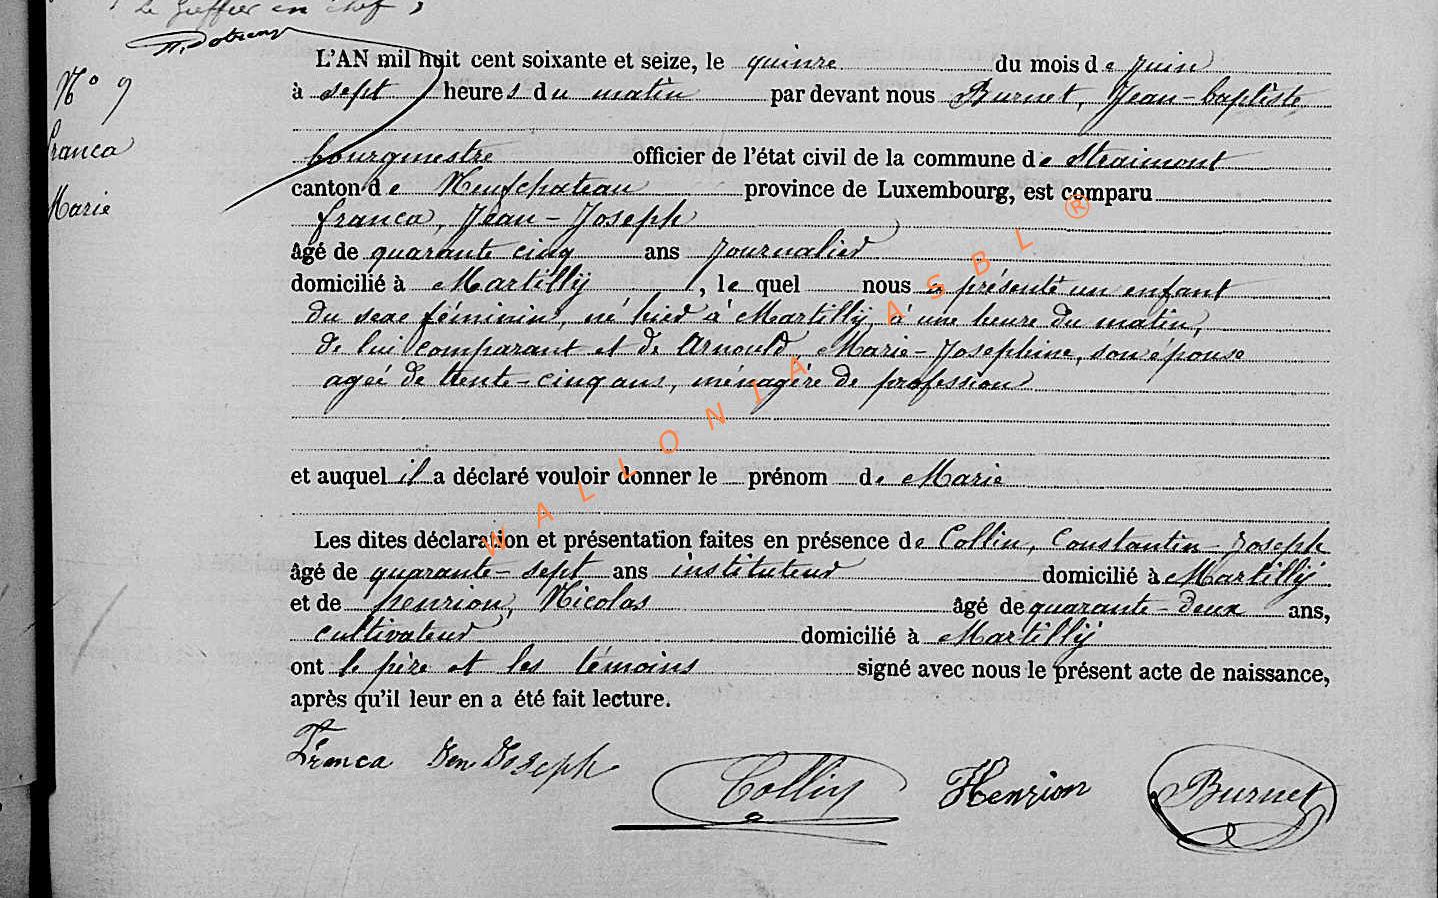 Le Greffier en chef,
N° 9
Franca
Marie
L'AN mil huit cent soixante et seize, le quinze du mois de juin
à sept heures du matin par devant nous Burnet, Jean-baptiste
bourgmestre officier de l'état civil de la commune de Straimont
canton de Neufchateau province de Luxembourg, est comparu
franca, Jean-Joseph
âgé de quarante cinq ans journalier
domicilié à Martilly, le quel nous a présenté un enfant
du sexe féminin, né hier à Martilly à une heure du matin,
de lui comparant et de Arnould, Marie-Josephine, son épouse
agée de trente-cinq ans, ménagère de profession
et auquel il a déclaré vouloir donner le prénom de Marie
Les dites déclaration et présentation faites en présence de Collin, Constantin-Joseph
âgé de quarante-sept ans instituteur domicilié à Martilly
et de henrion, Nicolas âgé de quarante-deux ans,
cultivateur domicilié à Martilly
ont le père et les témoins signé avec nous le présent acte de naissance,
après qu'il leur en a été fait lecture.
Franca Jean Joseph Collin Henrion Burnet
WALLONIA ASBL ®